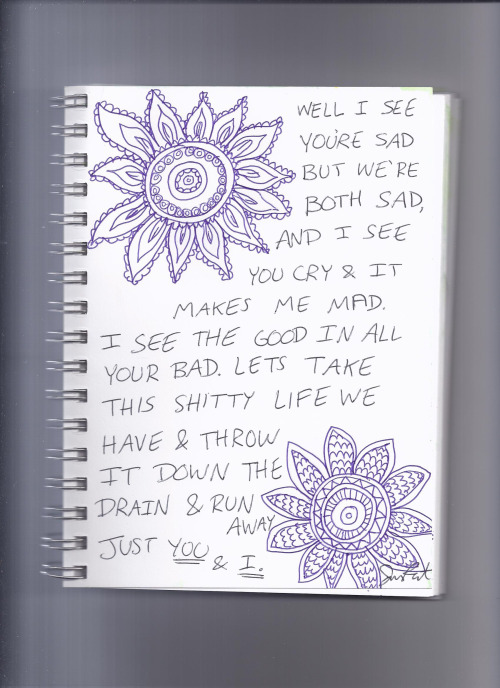 WELL I SEE
YOU'RE SAD
BUT WE'RE
BOTH SAD,
AND I SEE
YOU CRY & IT
MAKES ME MAD.
I SEE THE GOOD IN ALL
YOUR BAD. LETS TAKE
THIS SHITTY LIFE WE
HAVE & THROW
IT DOWN THE
DRAIN & RUN
AWAY
JUST YOU
& I.